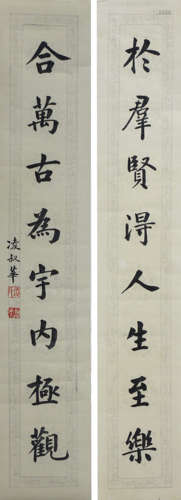 於羣賢得人生至樂
合萬古為宇內極觀
凌叔華